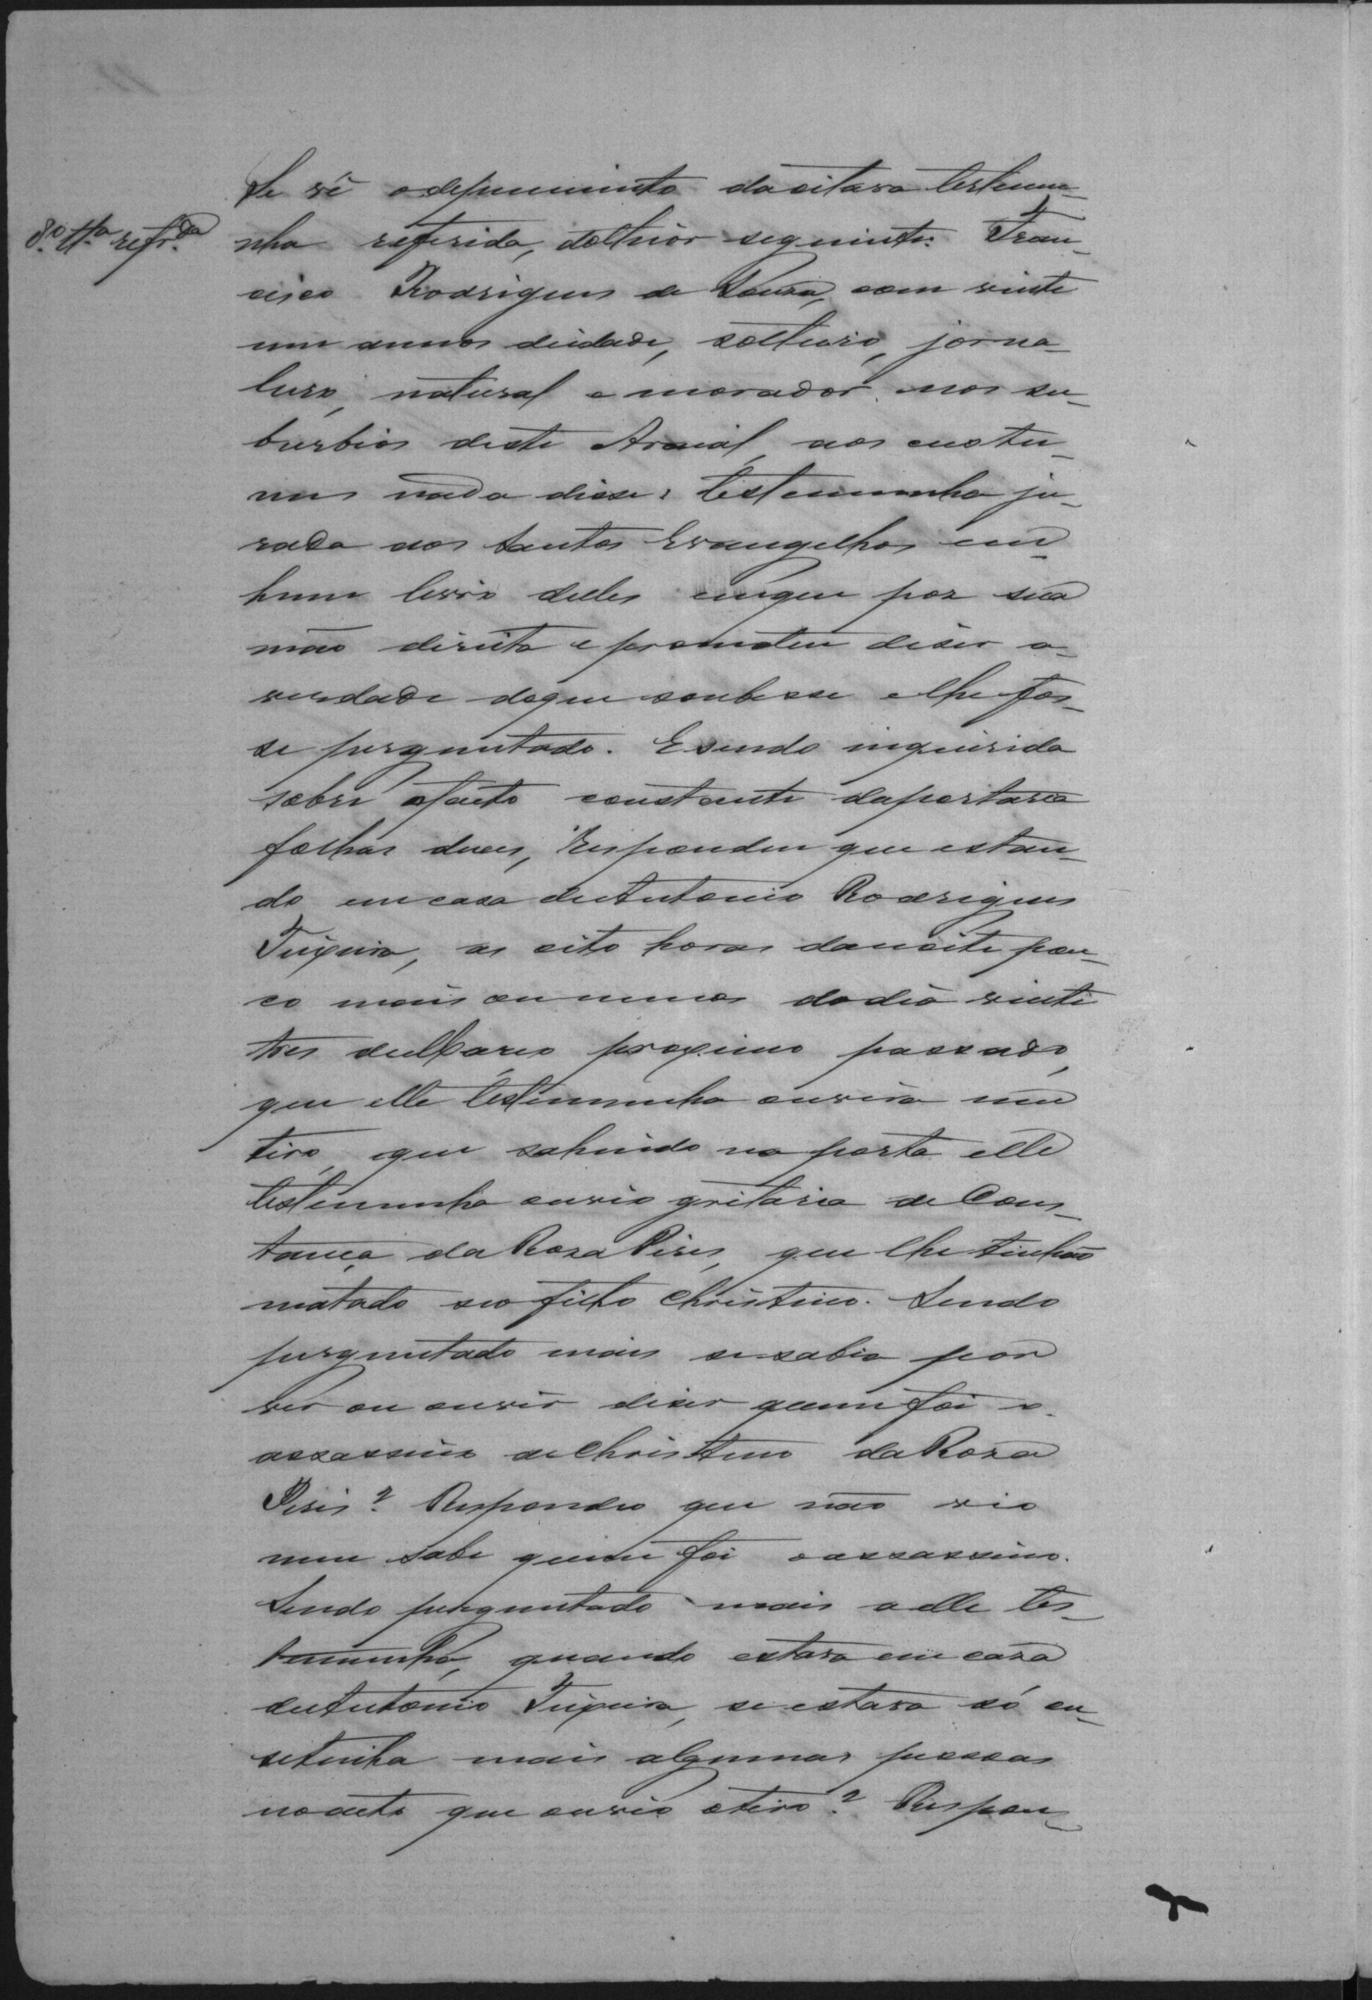 Se vê o depuimento da oitava testemu-
8.ª tt.ª refr.da
nha referida, do theor seguinte. Fran-
cisco Rodrigues de Souza, com vinte
um annos de idade, solteiro, jorna-
leiro, natural e morador nos su-
burbios deste Arraial, aos custu-
mes nada disse; testemunha ju-
rada aos Santos Evangelhos em
hum livro delles em que poz sua
mão direita e prometeu diser a
verdade do que soubesse e lhe fos-
se perguntado. E sendo inquirida
sobre o facto constante da portaria
folhas duas, Respondeu que estan-
do em casa de Antonio Rodrigues
Teixeira, as oito horas da noite pou-
co mais ou menos do dia vinte
tres de Março proximo passado,
que elle testemunha ouvira um
tiro, que sahindo na porta elle
testemunha ouvio gritaria de Cons-
tança da Roza Pires, que lhe tinhão
matado seo filho Christino. Sendo
perguntado mais se sabia por
ver ou ouvir diser quem foi o
assassino de Christino da Roza
Pires? Respondeo que não vio
nem sabe quem foi o assassino.
Sendo perguntado mais a elle tes-
temunha, quando estava em casa
de Antonio Teixeira, se estava só ou
se tinha mais algumas pessoas
no acto que ouvio o tiro? Respon-